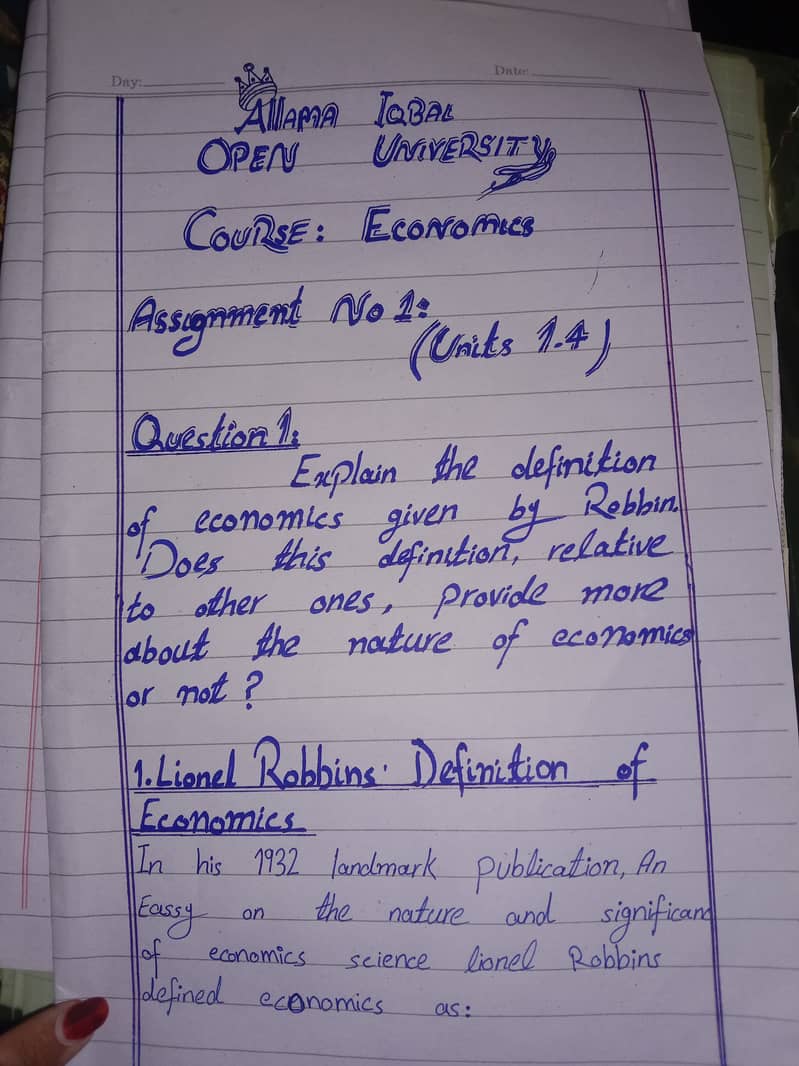 Day:
Date:
Allama Iqbal
Open University
Course: Economics
Assignment No 1:
(Units 1.4)
Question 1:
Explain the definition
of economics given by Robbin.
Does this definition, relative
to other ones, provide more
about the nature of economics
or not?
1. Lionel Robbins' Definition of
Economics
In his 1932 landmark publication, An
Eassy on the nature and significand
of economics science lionel Robbins
defined economics as: